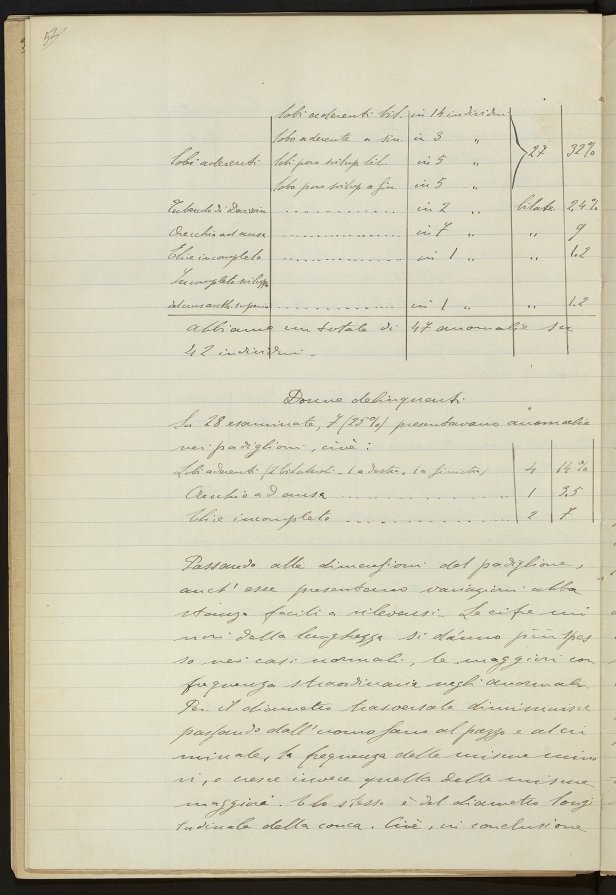 52
lobi aderenti bil. in 14 individui
lobo aderente a sin. in 3 "
lobi aderenti lobi poco svilup. bil. in 5 " 27 32%
lobo poco svilup. a sin in 5 "
Tubercolo di Darwin .............. in 2 " bilate. 2,4%
Orecchio ad ansa .............. in 7 " " 9
Elice incompleto .............. in 1 " " 1.2
Incompleto svilupp.
del crus anth. superio .............. in 1 " " 1.2
abbiamo un totale di 47 anomalie su
42 individui.
Donne delinquenti
Su 28 esaminate, 7 (25%) presentavano anomalie
nei padiglioni, cioè:
Lobi aderenti (2 bilaterali - 1 a destra, 1 a sinistra) 4 14%
Orecchio ad ansa .............. 1 3.5
Elice incompleto .............. 2 7
Passando alle dimensioni del padiglione,
anch' esse presentano variazioni abba
stanza facili a rilevarsi. Le cifre mi
nori della lunghezza si dànno più spes
so nei casi normali, le maggiori con
frequenza straordinaria negli anormali.
Per il diametro trasversale diminuisce
passando dall' uomo sano al pazzo e al cri
minale, la frequenza delle misure mino
ri, e cresce invece quella delle misure
maggiori. E lo stesso è del diametro longi
tudinale della conca. Cioè, in conclusione